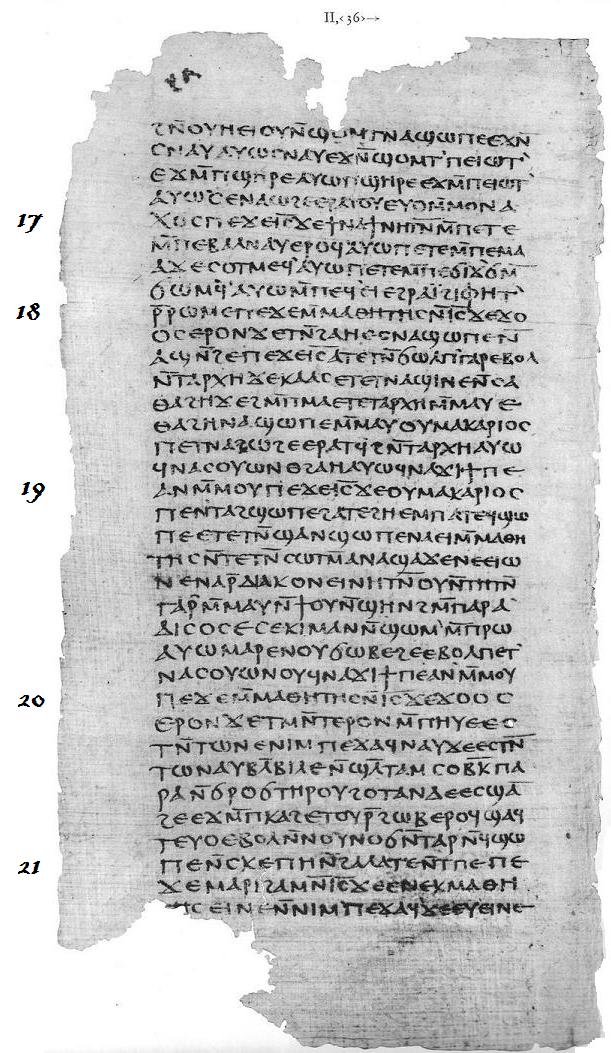 II,‹36›→
ϩⲛ̄ⲟⲩⲏⲉⲓⲟⲩⲛ̄ϣⲟⲙⲧⲛⲁϣⲱⲡⲉⲉϫⲛ̄
ⲥⲛⲁⲩⲁⲩⲱⲥⲛⲁⲩⲉϫⲛ̄ϣⲟⲙⲧ'ⲡⲉⲓⲱⲧ'
ⲉϫⲙ̄ⲡϣⲏⲣⲉⲁⲩⲱⲡϣⲏⲣⲉⲉϫⲙ̄ⲡⲉⲓⲱⲧ'
ⲁⲩⲱⲥⲉⲛⲁⲱϩⲉⲉⲣⲁⲧⲟⲩⲉⲩⲟⲙ̄ⲙⲟⲛⲁ
17 ⲭⲟⲥⲡⲉϫⲉⲓ̄ⲥ̄ϫⲉϯⲛⲁϯⲛⲏⲧⲛ̄ⲙ̄ⲡⲉⲧⲉ
ⲙ̄ⲡⲉⲃⲁⲗⲛⲁⲩⲉⲣⲟϥ'ⲁⲩⲱⲡⲉⲧⲉⲙ̄ⲡⲉⲙⲁ
ⲁϫⲉⲥⲟⲧⲙⲉϥ'ⲁⲩⲱⲡⲉⲧⲉⲙ̄ⲡⲉϭⲓϫ'ϭⲙ̄
ϭⲱⲙϥ'ⲁⲩⲱⲙ̄ⲡⲉϥ'ⲉⲓⲉϩⲣⲁⲓ̈ϩⲓⲫⲏⲧ'
18 ⲣ̄ⲣⲱⲙⲉⲡⲉϫⲉⲙ̄ⲙⲁⲑⲏⲧⲏⲥⲛ̄ⲓ̄ⲥ̄ϫⲉϫⲟ
ⲟⲥⲉⲣⲟⲛϫⲉⲧⲛ̄ϩⲁⲏⲉⲥⲛⲁϣⲱⲡⲉⲛ̄
ⲁϣⲛ̄ϩⲉⲡⲉϫⲉⲓ̄ⲥ̄ⲁⲧⲉⲧⲛ̄ϭⲱⲗⲡ'ⲅⲁⲣⲉⲃⲟⲗ
ⲛ̄ⲧⲁⲣⲭⲏϫⲉⲕⲁⲁⲥⲉⲧⲉⲧⲛⲁϣⲓⲛⲉⲛ̄ⲥⲁ
ⲑⲁϩⲏϫⲉϩⲙ̄ⲡⲙⲁⲉⲧⲉⲧⲁⲣⲭⲏⲙ̄ⲙⲁⲩⲉ
ⲑⲁϩⲏⲛⲁϣⲱⲡⲉⲙ̄ⲙⲁⲩⲟⲩⲙⲁⲕⲁⲣⲓⲟⲥ
ⲡⲉⲧⲛⲁϩⲱϩⲉⲉⲣⲁⲧϥ'ϩⲛ̄ⲧⲁⲣⲭⲏⲁⲩⲱ
ϥⲛⲁⲥⲟⲩⲱⲛⲑϩⲁⲏⲁⲩⲱϥⲛⲁϫⲓϯⲡⲉ
19 ⲁⲛⲙ̄ⲙⲟⲩⲡⲉϫⲉⲓ̄ⲥ̄ϫⲉⲟⲩⲙⲁⲕⲁⲣⲓⲟⲥ
ⲡⲉⲛⲧⲁϩϣⲱⲡⲉϩⲁⲧⲉϩⲏⲉⲙⲡⲁⲧⲉϥϣⲱ
ⲡⲉⲉⲧⲉⲧⲛ̄ϣⲁⲛϣⲱⲡⲉⲛⲁⲉⲓⲙ̄ⲙⲁⲑⲏ
ⲧⲏⲥⲛ̄ⲧⲉⲧⲛ̄ⲥⲱⲧⲙ̄ⲁⲛⲁϣⲁϫⲉⲛⲉⲉⲓⲱ
ⲛⲉⲛⲁⲣ̄ⲇⲓⲁⲕⲟⲛⲉⲓⲛⲏⲧⲛ̄ⲟⲩⲛ̄ⲧⲏⲧⲛ̄
ⲅⲁⲣⲙ̄ⲙⲁⲩⲛ̄ϯⲟⲩⲛ̄ϣⲏⲛϩⲙ̄ⲡⲁⲣⲁ
ⲇⲓⲥⲟⲥⲉⲥⲉⲕⲓⲙⲁⲛⲛ̄ϣⲱⲙ'ⲙ̄ⲡⲣⲱ
ⲁⲩⲱⲙⲁⲣⲉⲛⲟⲩϭⲱⲃⲉϩⲉⲉⲃⲟⲗⲡⲉⲧ'
ⲛⲁⲥⲟⲩⲱⲛⲟⲩϥⲛⲁϫⲓϯⲡⲉⲁⲛⲙ̄ⲙⲟⲩ
20 ⲡⲉϫⲉⲙ̄ⲙⲁⲑⲏⲧⲏⲥⲛ̄ⲓ̄ⲥ̄ϫⲉϫⲟⲟⲥ
ⲉⲣⲟⲛϫⲉⲧⲙⲛ̄ⲧⲉⲣⲟⲛⲙ̄ⲡⲏⲩⲉⲉⲥ
ⲧⲛ̄ⲧⲱⲛⲉⲛⲓⲙⲡⲉϫⲁϥⲛⲁⲩϫⲉⲉⲥⲧⲛ̄
ⲧⲱⲛⲁⲩⲃⲗ̄ⲃⲓⲗⲉⲛ̄ϣⲗ̄ⲧⲁⲙⲥⲟⲃⲕ̄ⲡⲁ
ⲣⲁⲛ̄ϭⲣⲟϭⲧⲏⲣⲟⲩϩⲟⲧⲁⲛⲇⲉⲉⲥϣⲁ
ϩⲉⲉϫⲙ̄ⲡⲕⲁϩⲉⲧⲟⲩⲣ̄ϩⲱⲃⲉⲣⲟϥϣⲁϥ
ⲧⲉⲩⲟⲉⲃⲟⲗⲛ̄ⲛⲟⲩⲛⲟϭⲛ̄ⲧⲁⲣⲛ̄ϥϣⲱ
21 ⲡⲉⲛ̄ⲥⲕⲉⲡⲏⲛ̄ϩⲁⲗⲁⲧⲉⲛ̄ⲧⲡⲉⲡⲉ
ϫⲉⲙⲁⲣⲓϩⲁⲙⲛ̄ⲓ̄ⲥ̄ϫⲉⲉⲛⲉⲕⲙⲁⲑⲏ
ⲧⲏⲥⲉⲓⲛⲉⲛ̄ⲛⲓⲙ'ⲡⲉϫⲁϥ'ϫⲉⲉⲩⲉⲓⲛⲉ